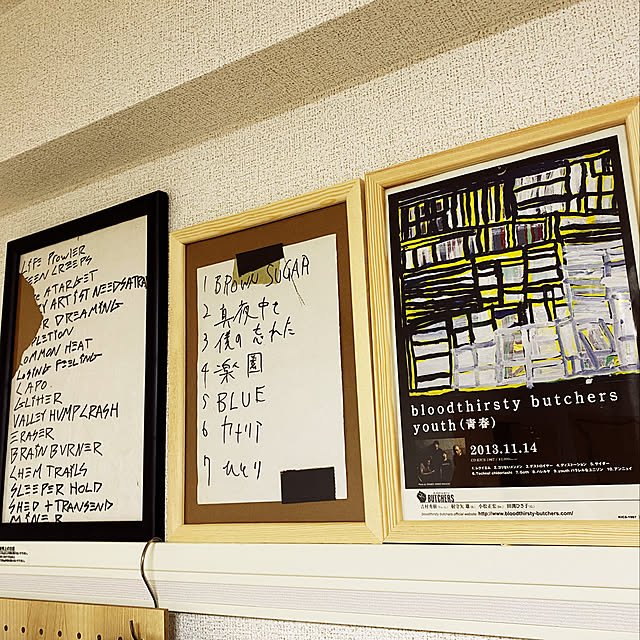 LIFE PROWLER
EEN CREEPS
STARGET
Y ARTIST NEEDS A TRA
R DREAMING
PLETION
OMMON HEAT
LOSING FEELING
CAPO.
GLITTER
VALLEY HUMP CRASH
ERASER
BRAIN BURNER
CHEM TRAILS
SLEEPER HOLD
SHED + TRANSEND
MINER
1 BROWN SUGAR
2 真夜中を
3 僕の忘れた
4 楽園
5 BLUE
6 カナリア
7 ひとり
bloodthirsty butchers
youth(青春)
2013.11.14
BUTCHERS
bloodthirsty butchers official website http://www.bloodthirsty-butchers.com/